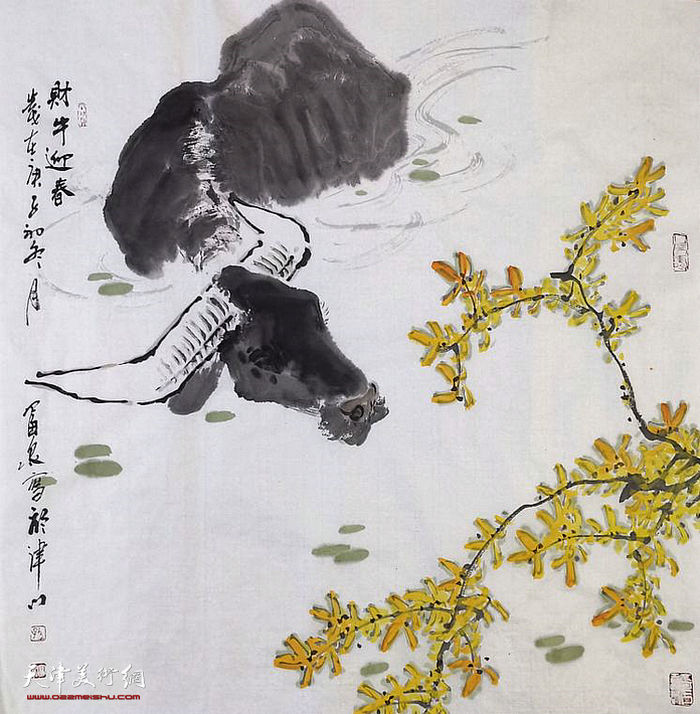 財牛迎春
歲在庚子初冬月
富泉寫於津門
天津美術網
www.022meishu.com